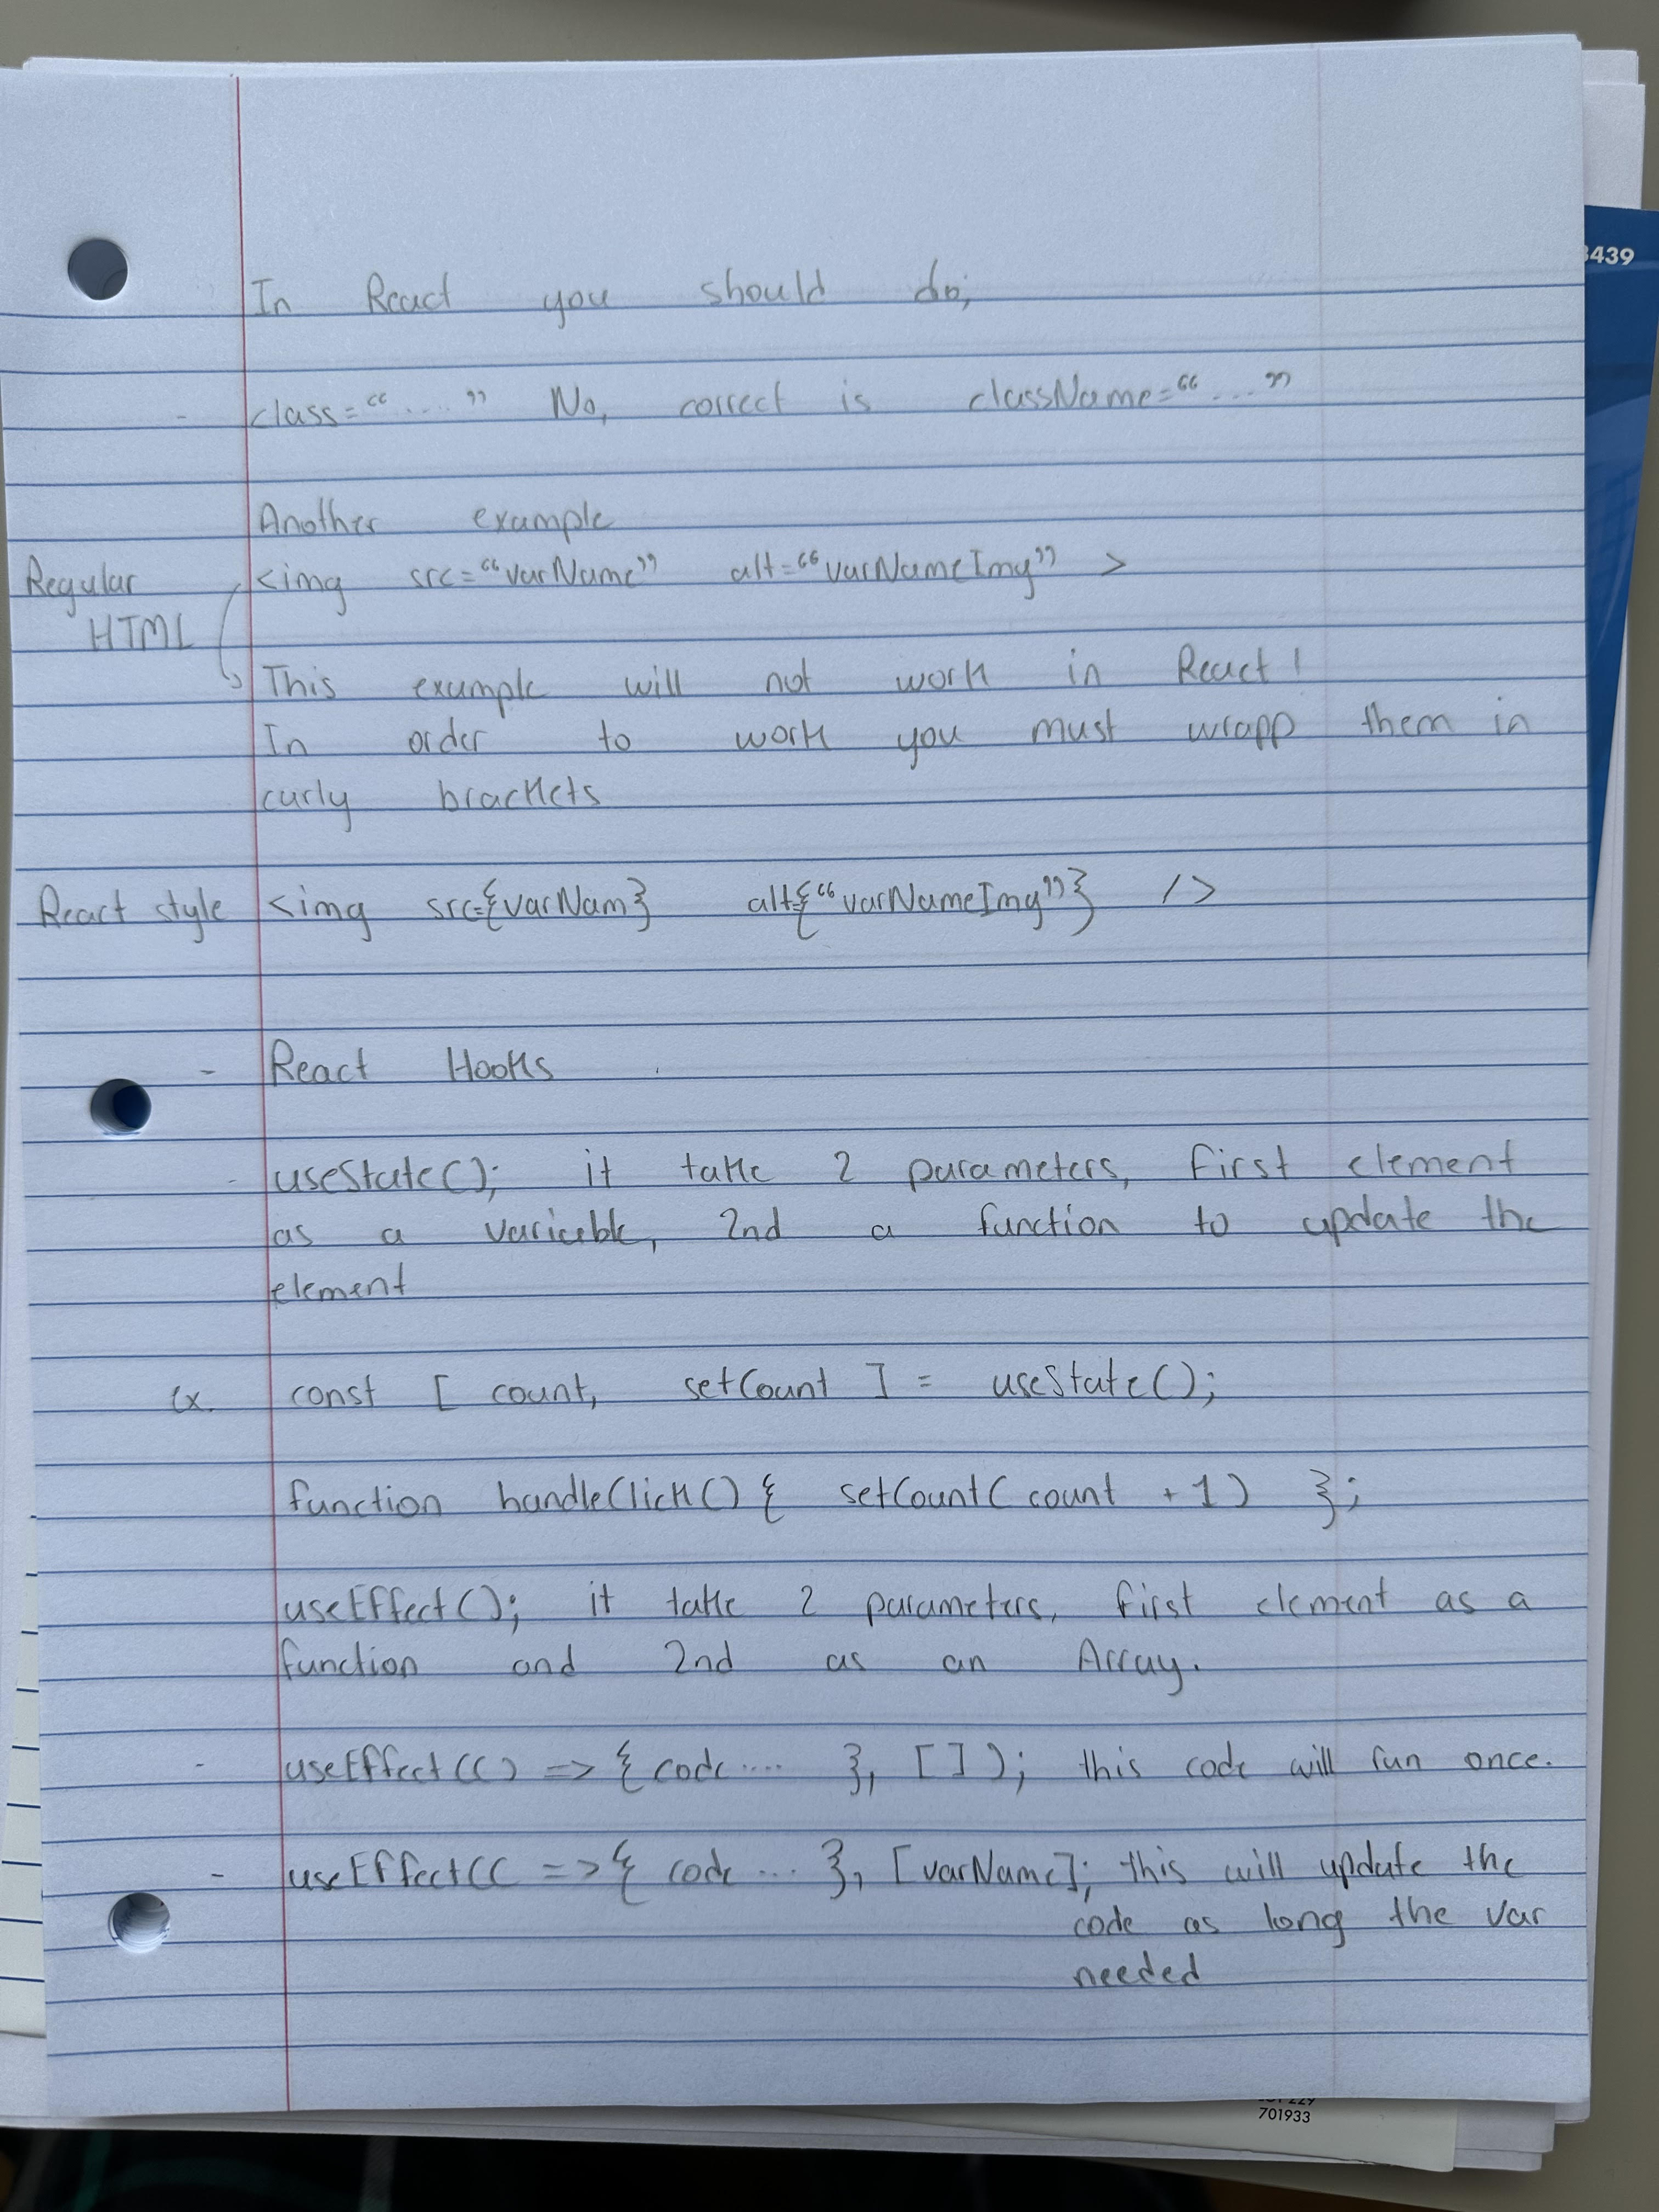 3439
In React you should do;
- class="...." No, correct is className="..."
Another example
Regular <img src="varName" alt="varNameImg" >
HTML
This example will not work in React!
In order to work you must wrapp them in
curly brackets
React style <img src={varNam} alt={"varNameImg"} />
- React Hooks
- useState(); it take 2 parameters, first element
as a variable, 2nd a function to update the
element
ex. const [ count, setCount ] = useState();
function handleClick() { setCount( count +1) };
useEffect(); it take 2 parameters, first element as a
function and 2nd as an Array.
- useEffect(() => { code .... }, [ ] ); this code will run once.
- useEffect(( => { code ... }, [varName]; this will update the
code as long the var
needed
701933